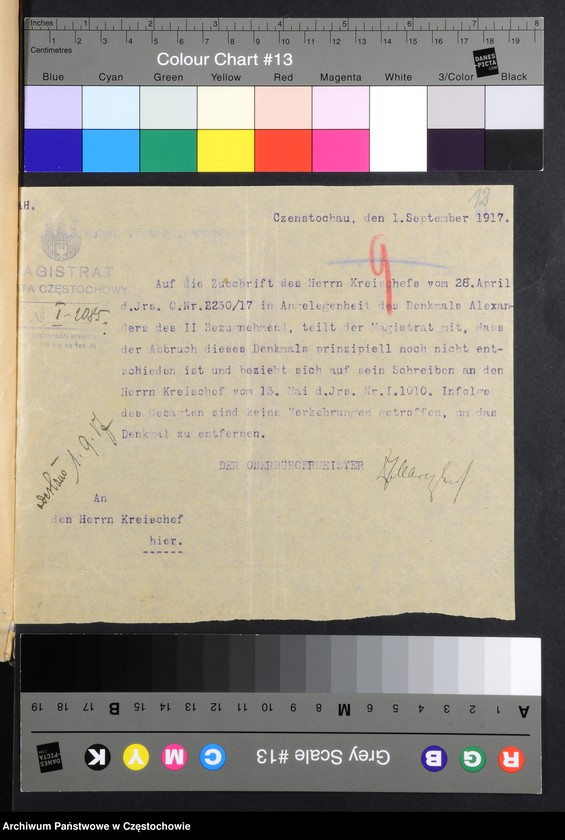 Inches 1 2 3 4 5 6 7 8
Centimetres 1 2 3 4 5 6 7 8 9 10 11 12 13 14 15 16 17 18 19
Colour Chart #13
DANES-PICTA
Blue Cyan Green Yellow Red Magenta White 3/Color Black
AH.
Czenstochau, den 1.September 1917.
9
AGISTRAT
TA CZĘSTOCHOWY
№ I-2085.
Auf die Zuschrift des Herrn Kreischefs vom 28.April
d.Jrs. G.Nr.2230/17 in Angelegenheit des Denkmals Alexan-
ders des II Bezugnehmend, teilt der Magistrat mit, dass
der Abbruch dieses Denkmals prinzipiell noch nicht ent-
schieden ist und bezieht sich auf sein Schreiben an den
Herrn Kreischef vom 13. Mai d.Jrs. Nr.I.1010. Infolge
des Gesagten sind keine Verkehrungen getroffen, um das
Denkmal zu entfernen.
DER OBERBÜRGERMEISTER
1.9.17
An
den Herrn Kreischef
hier.
19 18 17 B 16 15 14 13 12 11 10 9 8 7 M 6 5 4 3 2 1 A
K Y M C Grey Scale #13 B G R
DANES-PICTA
Archiwum Państwowe w Częstochowie